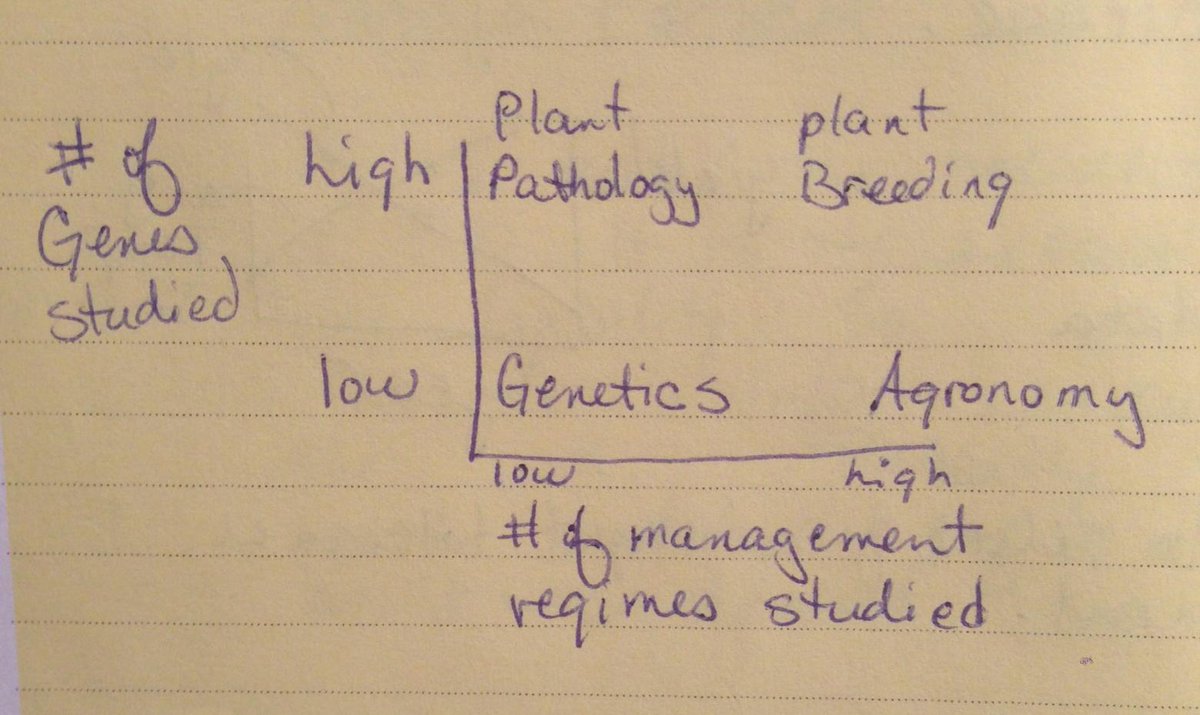 # of
Genes
studied
high
low
Plant
Pathology
plant
Breeding
Genetics
Agronomy
low
high
# of management
regimes studied